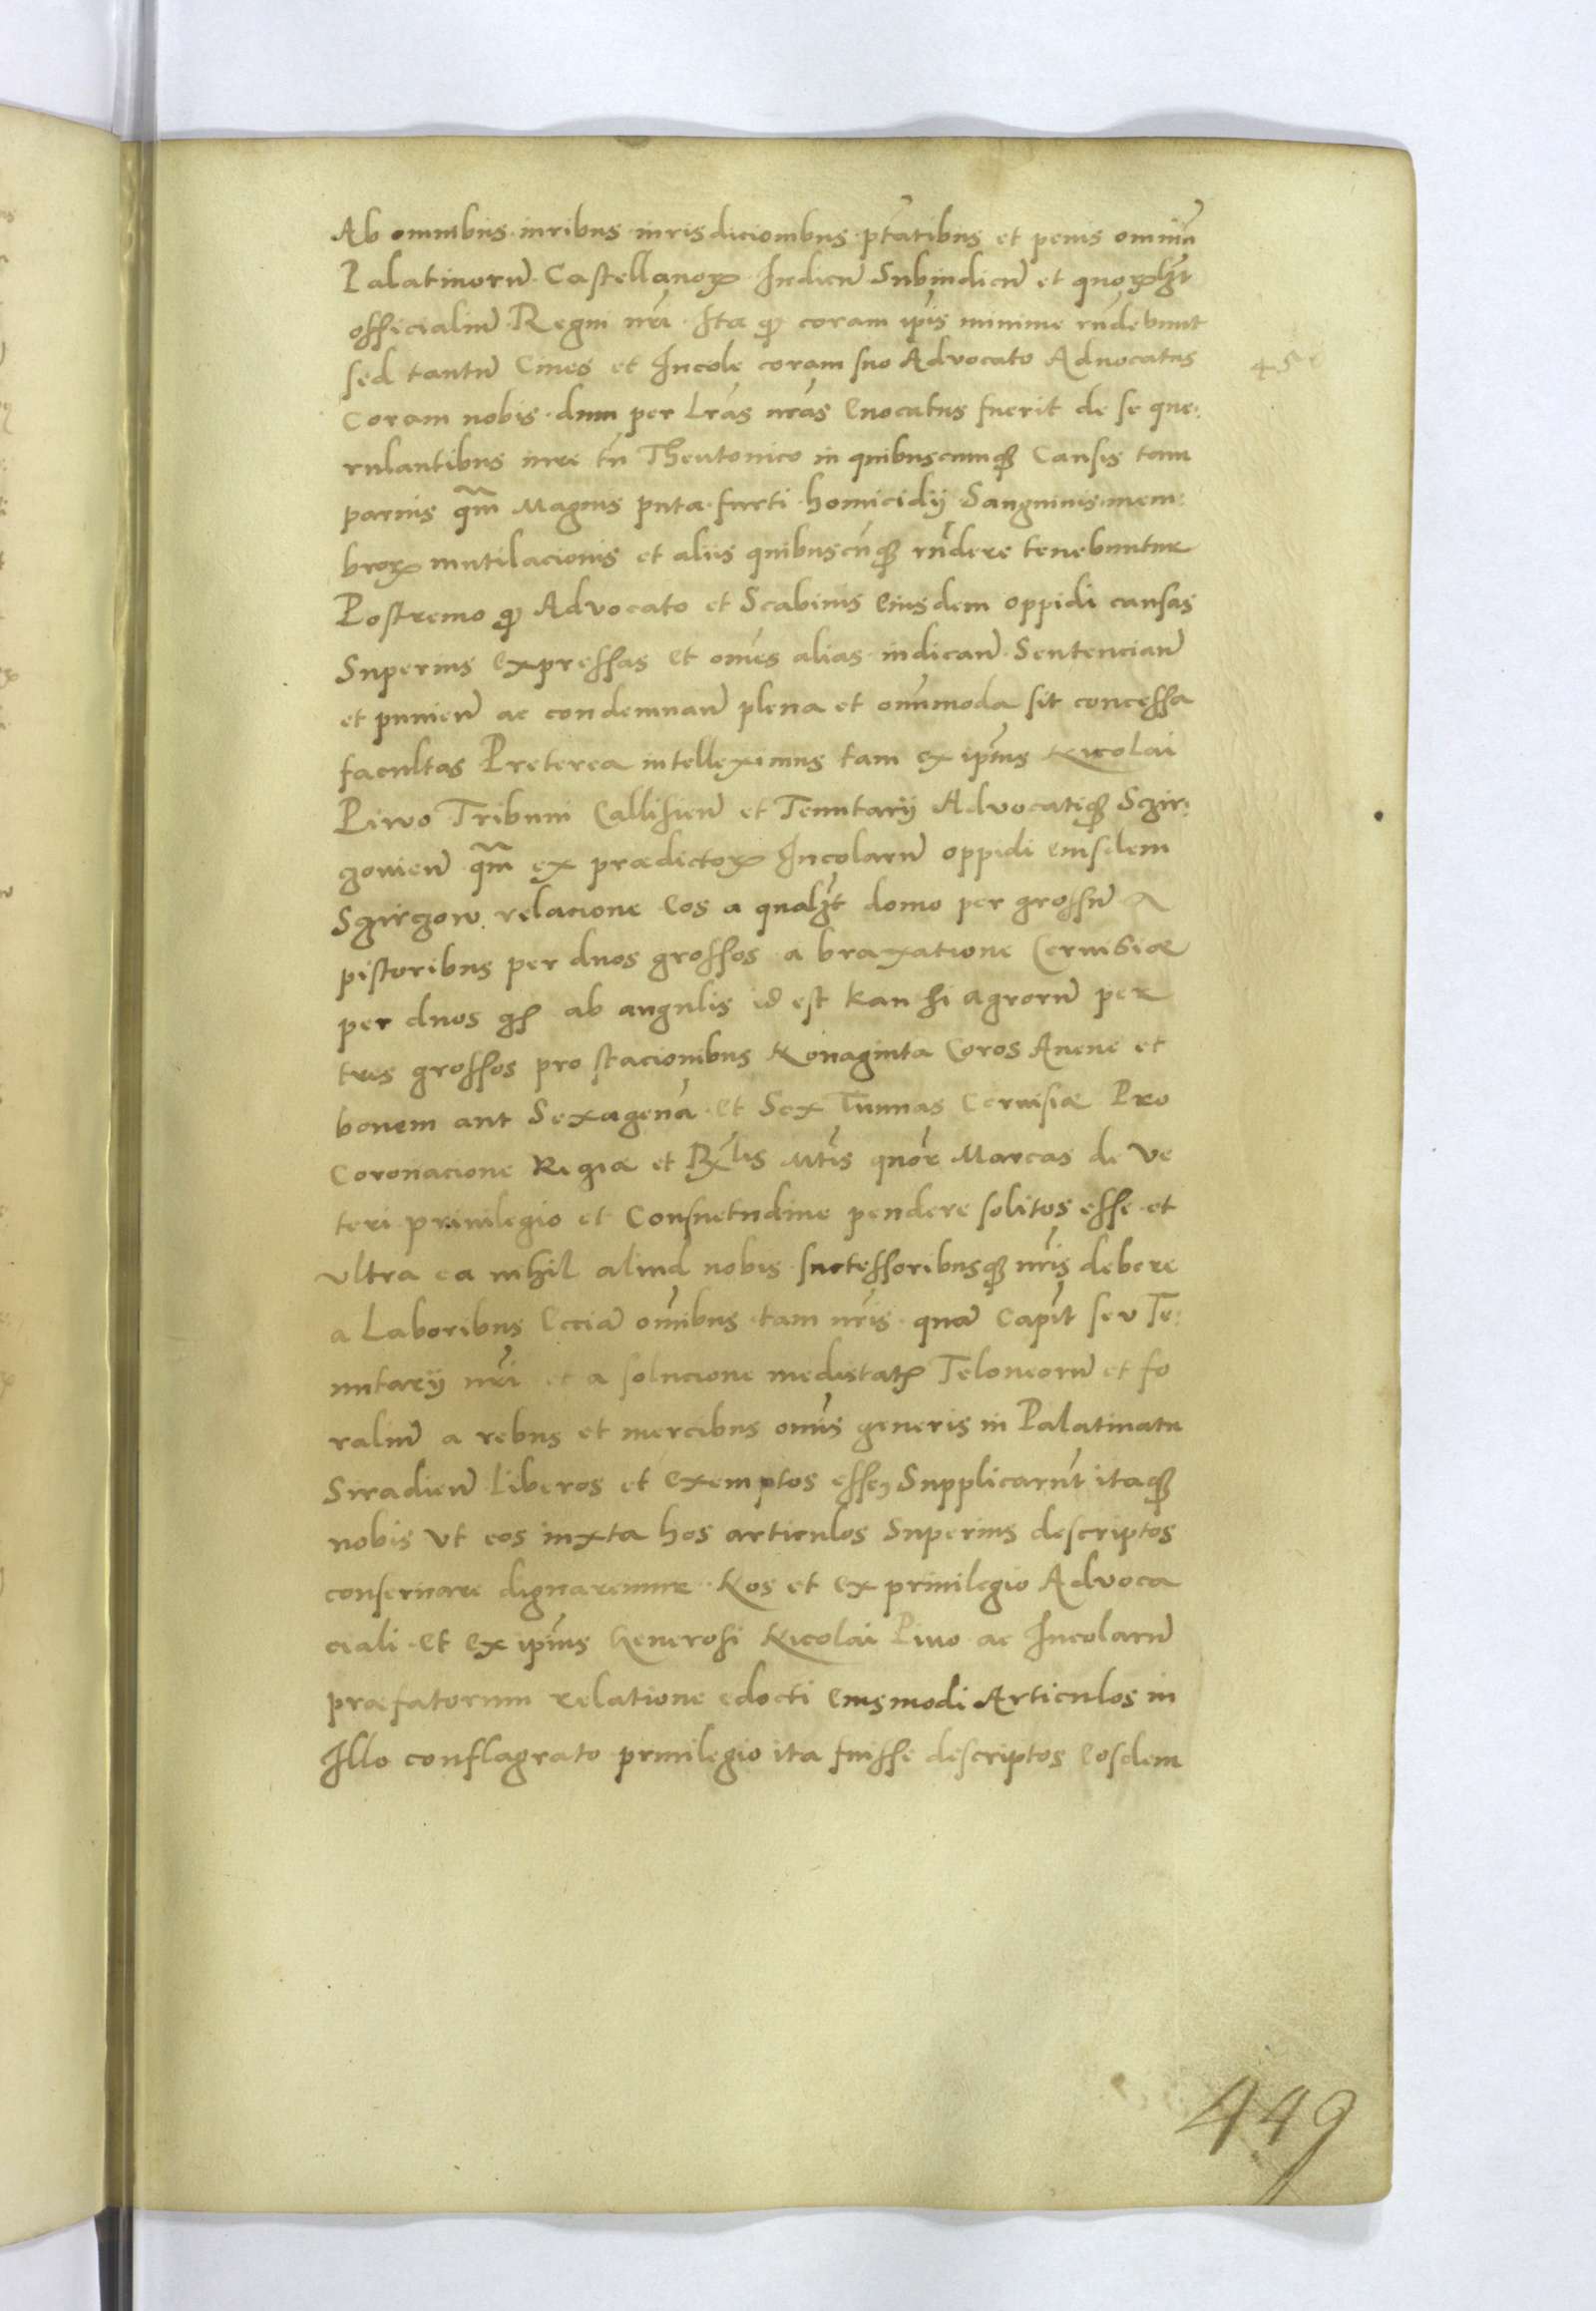 Ab omnibus iuribus iurisdicionibus ptãtibus et penis omniũ
Palatinorũ Castellanoꝝ Iudicũ Subiudicũ et quoꝝlꝫt
officialiũ Regni nr̃i Ita ꝙ coram ip̃is minime rñdebunt
sed tantũ Ciues et Incole coram suo Advocato Aduocatus
Coram nobis dum per Lr̃as nr̃as Euocatus fuerit de se que:
rulantibus iure tñ Theutonico in quibuscumqꝫ Causis tam
paruis q̃m Magnis puta furti homicidij Sanguinis mem:
broꝝ mutilacionis et aliis quibuscũqꝫ rñdere tenebuntur
Postremo ꝙ Advocato et Scabinis Eiusdem oppidi causas
Superius expressas et om̃es alias iudicanđ Sentencianđ
et punienđ ac condemnanđ plena et om̃imoda sit concessa
facultas Preterea intelleximus tam ex ip̃ius Nicolai
Piwo Tribuni Callisieñ et Tenutarij Advocatiqꝫ Szir:
gouieñ q̃m ex prædictoꝝ Incolarũ oppidi eiusdem
Szirgow relacione Eos a qualꝫt domo per grossũ A
pistoribus per duos grossos a braxatione Ceruisiæ
per duos gꝭ ab angulis id est kanthi agrorũ per
tres grossos pro stacionibus Nonaginta Coros Auene et
bouem aut Sexagenã et Sex Tunnas Ceruisiæ Pro
Coronacione Regiæ et R̃lis Mtis̃ quõr Marcas de Ve
teri priuilegio et Consuetudine pendere solitos esse et
Vltra ea nihil aliud nobis successoribusqꝫ nr̃is debere
a Laboribus Eciã om̃ibus tam nr̃is quã Capit̃ seu Te:
nutarij nr̃i et a solucione medietatꝭ Teloneorũ et fo
raliũ a rebus et mercibus om̃is generis in Palatinatu
Siradieñ Liberos et Exemptos esse, Supplicarũt itaqꝫ
nobis Vt eos iuxta hos articulos Superius descriptos
conseruare dignaremur Nos et ex priuilegio Advoca
ciali et Ex ip̃ius Generosi Nicolai Piuo ac Incolarũ
præfatorum relatione edocti Eiusmodi Articulos in
Illo conflagrato priuilegio ita fuisse descriptos Eosdem
449